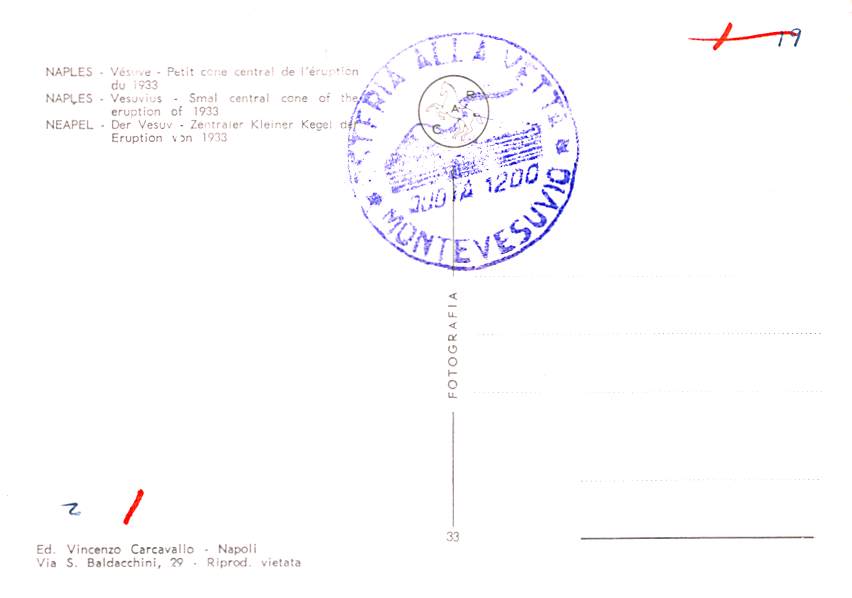 19
NAPLES - Vésuve - Petit cone central de l'éruption
du 1933
NAPLES - Vesuvius - Smal central cone of the
eruption of 1933
NEAPEL - Der Vesuv - Zentraler Kleiner Kegel der
Eruption von 1933
OSTERIA ALLA VETTA
C A R
QUOTA 1200
MONTEVESUVIO
FOTOGRAFIA
2
33
Ed. Vincenzo Carcavallo - Napoli
Via S. Baldacchini, 29 - Riprod. vietata